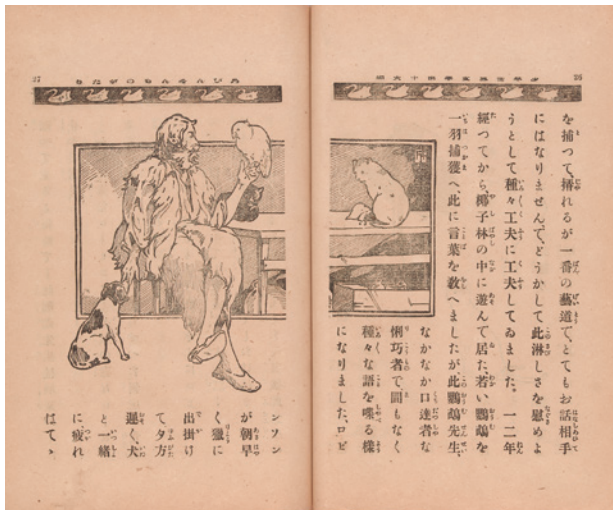 を捕つて、が一番の藝道で、とてもお話相手
にはなりませんで、どうかして此淋しさを慰めよ
うとして種々工夫に工夫してゐました。一二年
經つてから、椰子林の中に遊んで居た、若い鸚鵡を
一羽捕獲へ、此に言葉を敎へましたが、此鸚鵡先生、
なかなか口達者な
悧巧者で、間もなく
種々な語を喋る樣
になりました、ロビ
27
ンソン
が朝早
く獵に
出掛け
て夕方
遲く、犬
と一緒
に疲れ
はてゝ